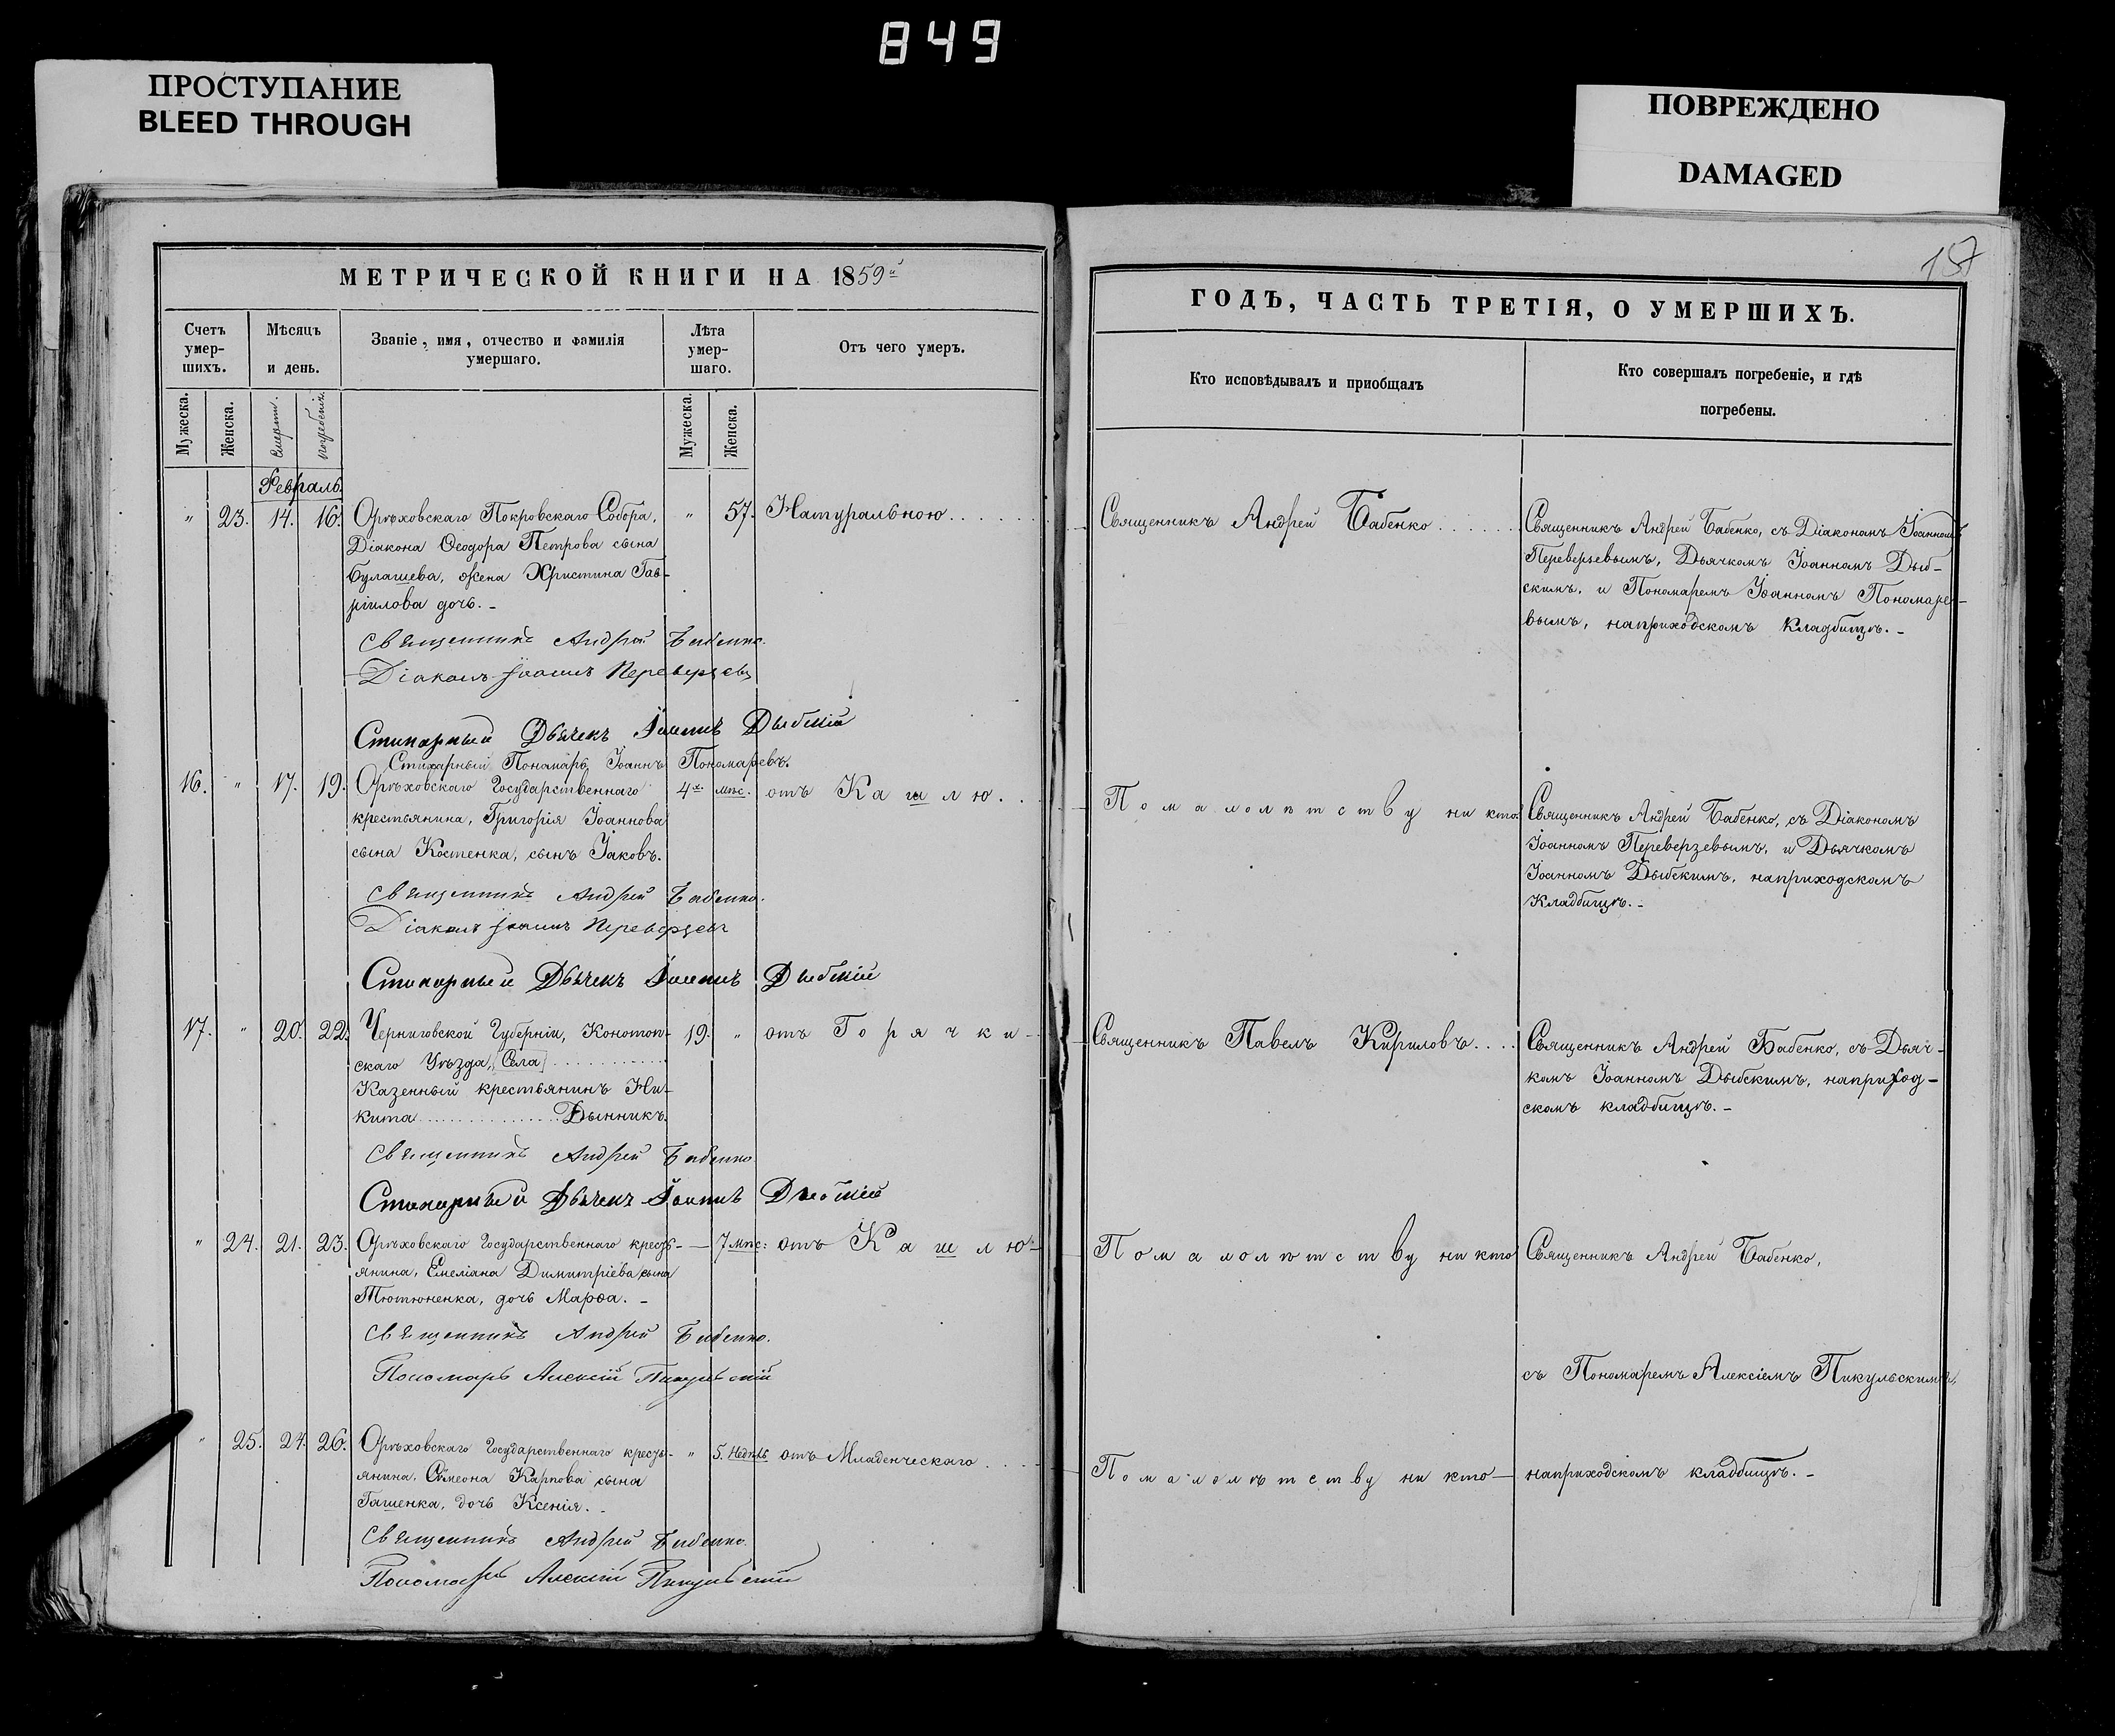 849
ПРОСТУПАНИЕ
BLEED THROUGH
ПОВРЕЖДЕНО
DAMAGED
МЕТРИЧЕСКОЙ КНИГИ НА 1859й
Счетъ умер-шихъ.
Мѣсяцъ и день.
Званіе, имя, отчество и фамилія умершаго.
Лѣта умер-шаго.
Отъ чего умеръ.
Мужеска. Женска. Смерти. Погребенія. Мужеска. Женска.
Февраль.
" 23. 14. 16. Орѣховскаго Покровскаго Собора, " 57. Натуральною......
Діакона Ѳеодора Петрова сына
Булашева, жена Христина Гав-
ріилова дочь. -
Священникъ Андрей Бабенко.
Діаконъ Іоаннъ Переверзевъ
Стихарный Дьячекъ Іоаннъ Дыбскій
Стихарный Пономарь Іоаннъ Пономаревъ.
16. " 17. 19. Орѣховскаго Государственнаго 4х мѣс. отъ Кашлю...
крестьянина, Григорія Іоаннова
сына Костенка, сынъ Іаковъ.
Священникъ Андрей Бабенко.
Діаконъ Іоаннъ Переверзевъ
Стихарный Дьячекъ Іоаннъ Дыбскій
17. " 20. 22. Черниговской Губерніи, Конотоп- 19. " отъ Горячки-
скаго Уѣзда, [Села]............
Казенный крестьянинъ Ни-
кита...............Дынникъ.
Священникъ Андрей Бабенко.
Стихарный Дьячекъ Іоаннъ Дыбскій
" 24. 21. 23. Орѣховскаго Государственнаго кресть- — 7 мѣс: отъ Кашлю-
янина, Емеліана Димитріева сына
Тютюненка, дочь Марѳа. -
Священникъ Андрей Бабенко.
Пономарь Алексій Пикульскій
" 25. 24. 26. Орѣховскаго Государственнаго кресть- " 5. Недѣль отъ Младенческаго....
янина, Симеона Карпова сына
Гашенка, дочь Ксенія. -
Священникъ Андрей Бабенко.
Пономарь Алексій Пикульскій
ГОДЪ, ЧАСТЬ ТРЕТІЯ, О УМЕРШИХЪ.
Кто исповѣдывалъ и пріобщалъ
Кто совершалъ погребеніе, и гдѣ
погребены.
Священникъ Андрей Бабенко...... Священникъ Андрей Бабенко, съ Діакономъ Іоанномъ
Переверзевымъ, Дьячкомъ Іоанномъ Дыб-
скимъ, и Пономаремъ Іоанномъ Пономаре-
вымъ, наприходскомъ кладбищѣ. -
По малолѣтству ни кто. Священникъ Андрей Бабенко, съ Діакономъ
Іоанномъ Переверзевымъ, и Дьячкомъ
Іоанномъ Дыбскимъ, наприходскомъ
кладбищѣ. -
Священникъ Павелъ Кириловъ.... Священникъ Андрей Бабенко, съ Дьяч-
комъ Іоанномъ Дыбскимъ, наприход-
скомъ кладбищѣ. -
По малолѣтству ни кто Священникъ Андрей Бабенко,
съ Пономаремъ Алексіемъ Пикульскимъ,
По малолѣтству ни кто — наприходскомъ кладбищѣ. -